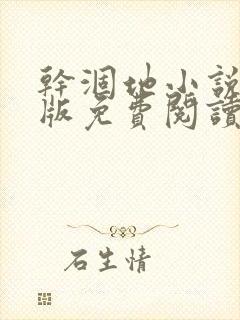 幹涸地小說
版免費閱讀
石生情